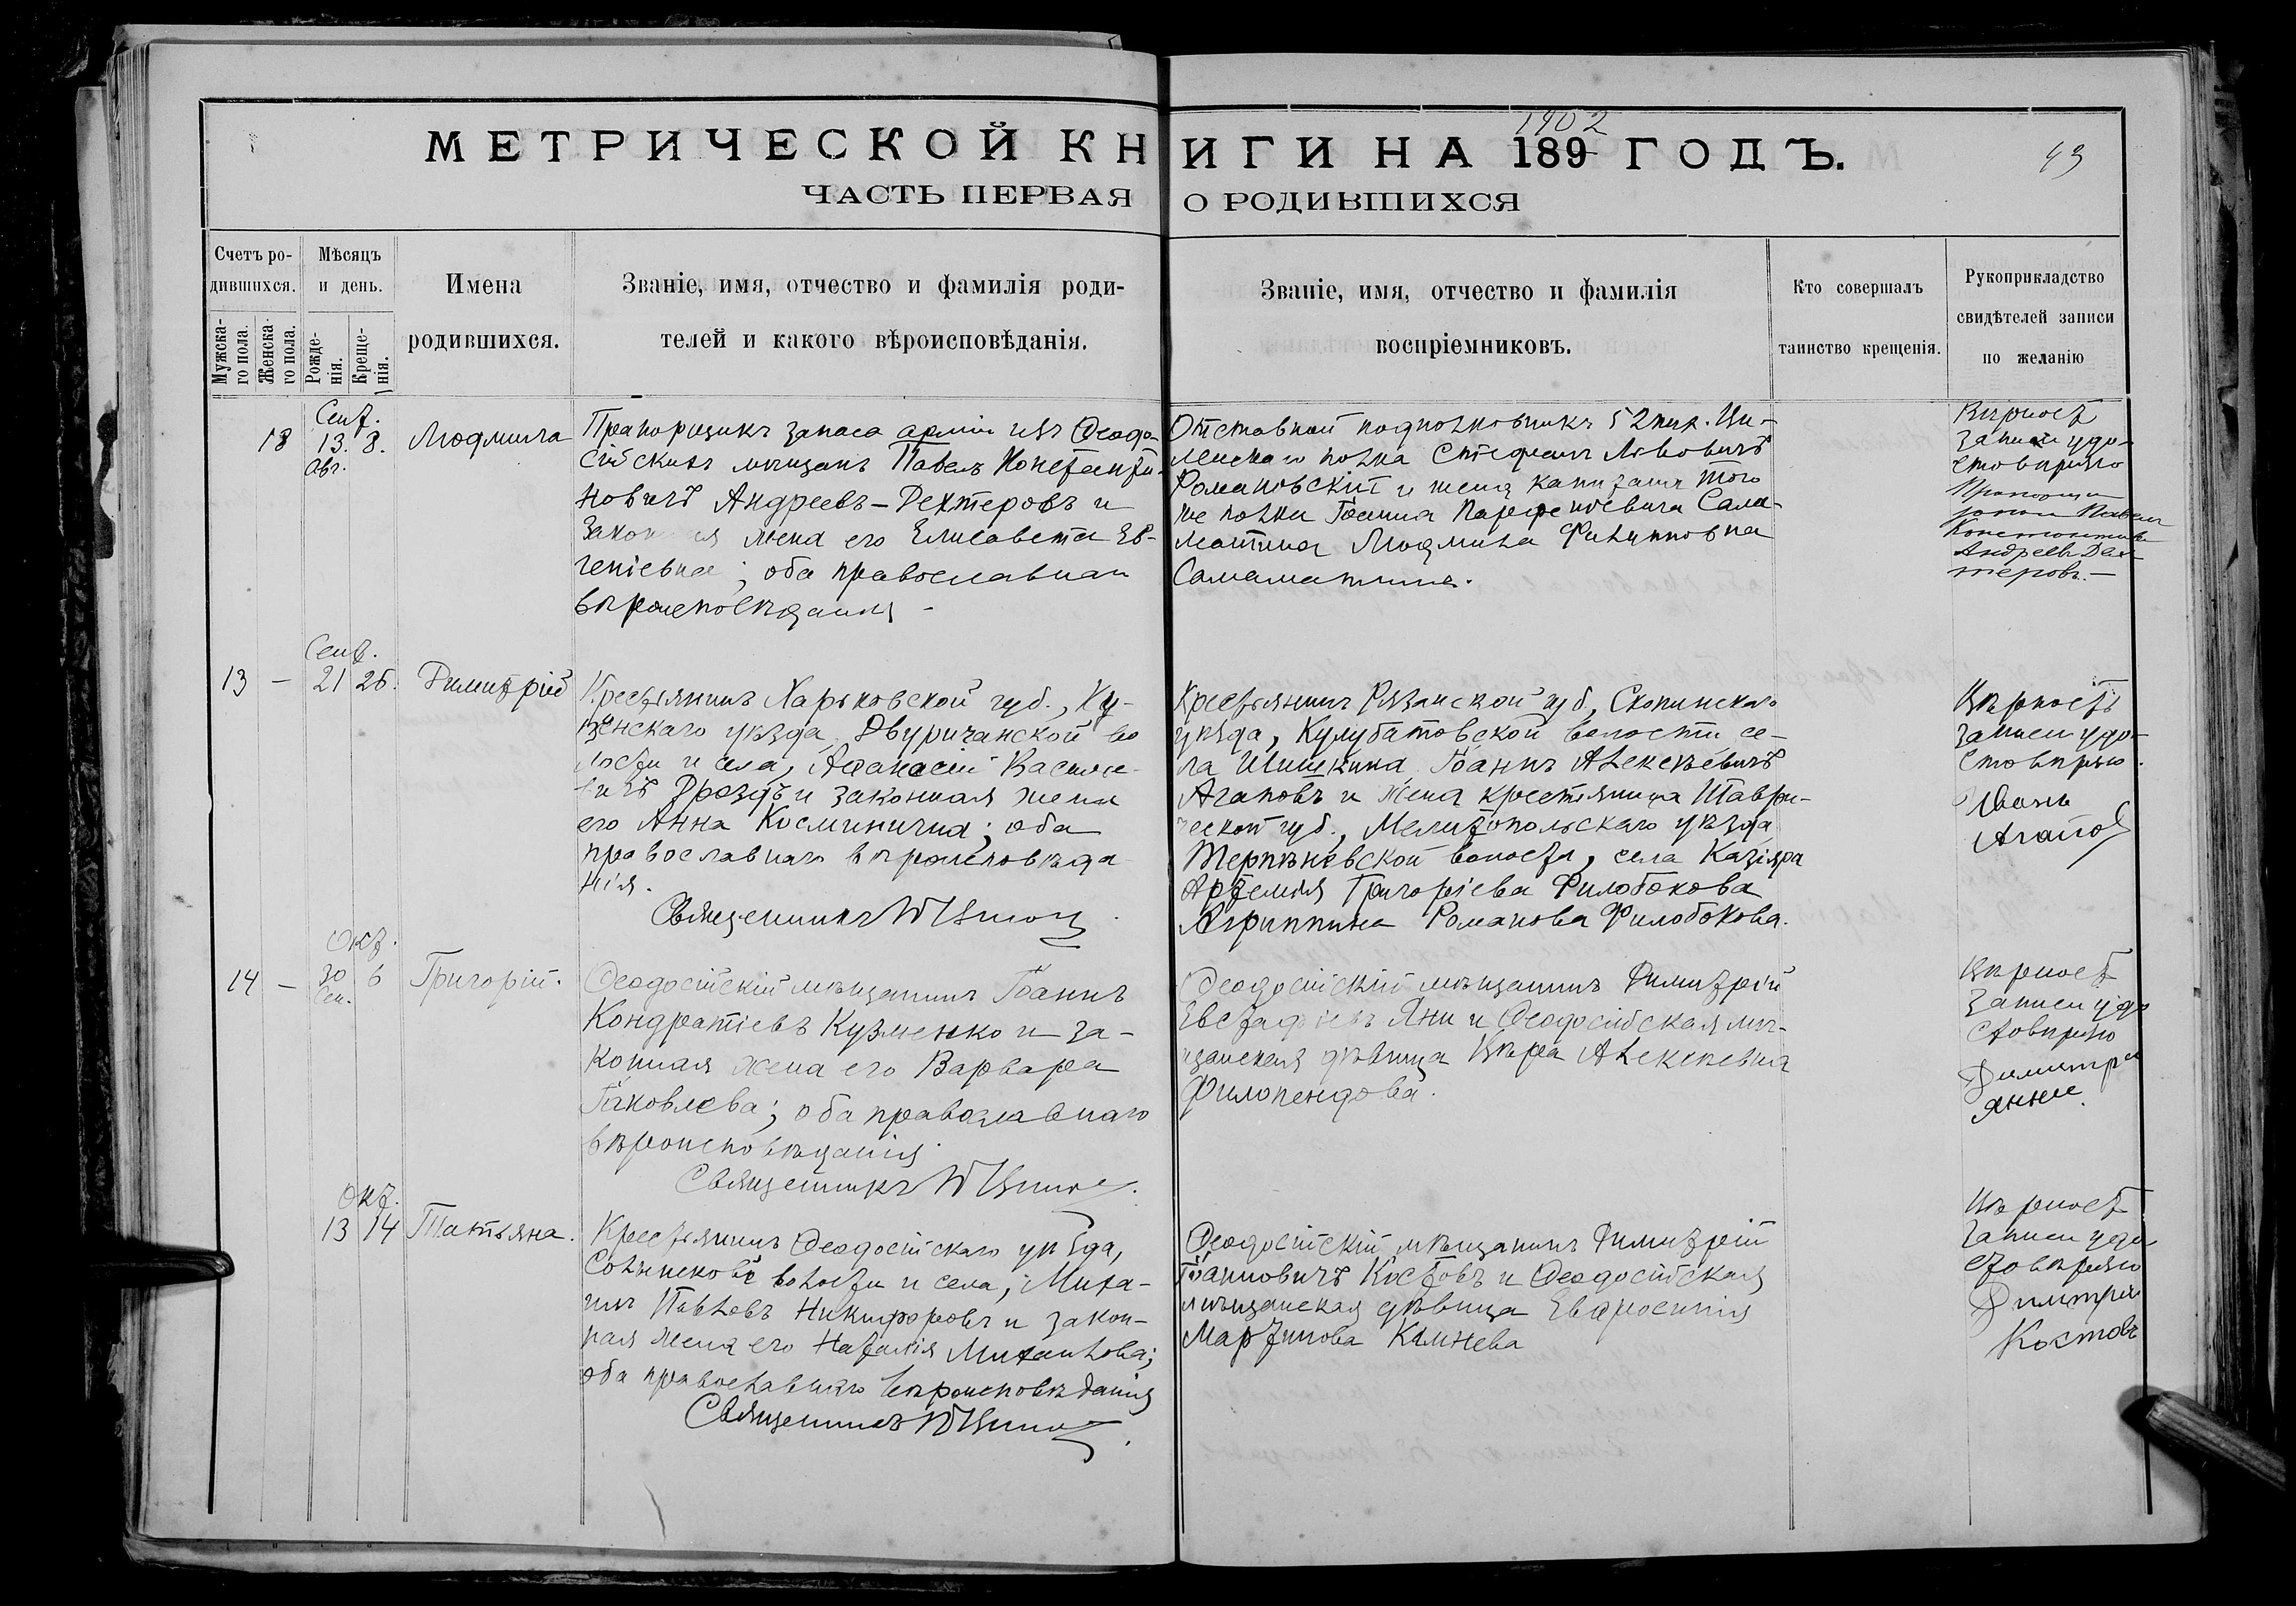 МЕТРИЧЕСКОЙ КНИГИ НА 189 ГОДЪ.
1902
43
ЧАСТЬ ПЕРВАЯ О РОДИВШИХСЯ
Счетъ родившихся.
Мужскаго пола.
Женскаго пола.
Мѣсяцъ и день.
Рожденія.
Крещенія.
Имена
родившихся.
Званіе, имя, отчество и фамилія роди-
телей и какого вѣроисповѣданія.
Званіе, имя, отчество и фамилія
воспріемниковъ.
Кто совершалъ
таинство крещенія.
Рукоприкладство
свидѣтелей записи
по желанію
Сент.
18 13. 8.
Авг.
Людмила
Прапорщикъ запаса арміи изъ Ѳеодо-
сійскихъ мѣщанъ Павелъ Константи-
новичъ Андреевъ-Дехтеровъ и
жена его Елисавета Ев-
геніевна; оба православнаго
вѣроисповѣданія
Отставной подполковникъ 52 пѣх. Ви-
ленскаго полка Стефанъ Львовичъ
Романовскій и жена капитана того
же полка Іоанна Парфеніевича Сала-
матина Людмила Филипповна
Саламатина.
Вѣрность
записи удо-
стовѣряю
Павелъ
Андреевъ Дех-
теровъ.—
Сент.
13 — 21 26.
Димитрій
Крестьянинъ Харьковской губ., Ку-
пянскаго уѣзда, Двуричанской во
лости и села, Аѳанасій Василье-
вичъ Дроздъ и законная жена
его Анна Косминична; оба
православнаго вѣроисповѣда
нія.
Священникъ
Крестьянинъ Рязанской губ., Скопинскаго
уѣзда, Кулубатовской волости се-
ла Шишкина Іоаннъ Алексѣевичъ
Агаповъ и жена крестьянина Таври-
ческой губ., Мелитопольскаго уѣзда
Терпѣніевской волости, села
Артемія Григоріева Филобокова
Агриппина Романова Филобокова.
Вѣрность
записи удо-
стовѣряю.
Иванъ
Агапов
Окт.
14 — 30 6
Сен.
Григорій.
Ѳеодосійскій мѣщанинъ Іоаннъ
Кондратіевъ Кузменко и за-
конная жена его Варвара
Іаковлева; оба православнаго
вѣроисповѣданія.
Священникъ
Ѳеодосійскій мѣщанинъ Димитрій
Евстафіевъ Яни и Ѳеодосійская мѣ-
щанская дѣвица Вѣра Алексѣевна
Филопендова.
Вѣрность
записи удо
стовѣряю
Димитрій
Янни.
Окт.
13 14
Татьяна.
Крестьянинъ Ѳеодосійскаго уѣзда,
волости и села, Миха-
илъ Павловъ Никифоровъ и закон-
ная жена его Наталія Михаилова;
оба православнаго вѣроисповѣданія
Священникъ
Ѳеодосійскій мѣщанинъ Димитрій
Іоанновичъ Костовъ и Ѳеодосійская
мѣщанская дѣвица Евфросинія
Мартинова Камнева
Вѣрность
записи удо
стовѣряю
Димитрій
Костовъ